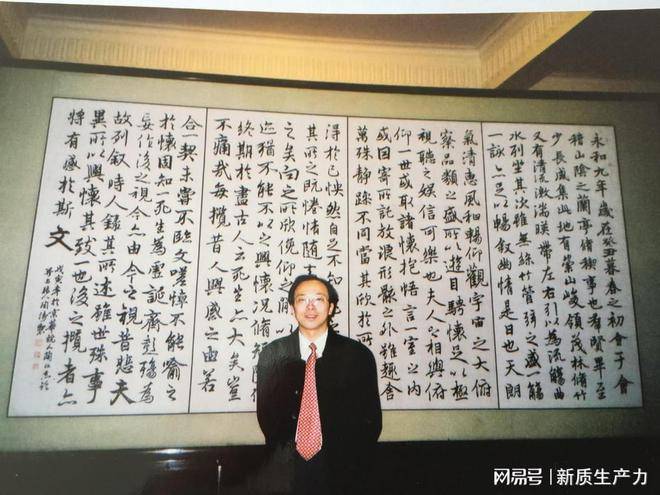 永和九年歲在癸丑暮春之初會于會
稽山陰之蘭亭脩稧事也羣賢畢至
少長咸集此地有崇山峻領茂林脩竹
又有清流激湍暎帶左右引以為流觴曲
水列坐其次雖無絲竹管弦之盛一觴
一詠亦足以暢叙幽情是日也天朗
氣清惠風和暢仰觀宇宙之大俯
察品類之盛所以遊目騁懷足以極
視聽之娛信可樂也夫人之相與俯
仰一世或取諸懷抱悟言一室之內
或因寄所託放浪形骸之外雖趣舍
萬殊靜躁不同當其欣於所
得於己怏然自足不知
其所之既惓情隨
之矣向之所欣俛仰之
迹猶不能不以之興懷況脩短
終期於盡古人云死生亦大矣豈
不痛哉每攬昔人興感之由若
合一契未嘗不臨文嗟悼不能喻之
於懷固知死生為虛誕齊彭殤為
妄作後之視今亦由今之視昔悲夫
故列叙時人錄其所述雖世殊事
異所以興懷其致一也後之攬者亦
將有感於斯文
网易号 | 新质生产力